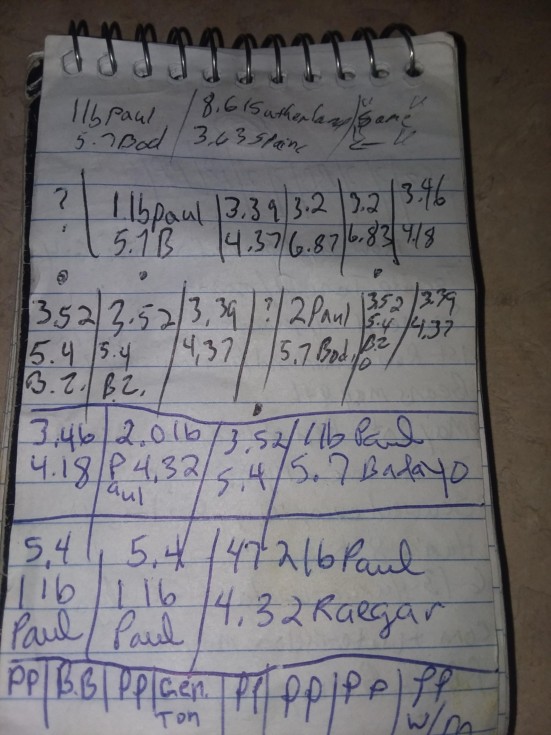 1 lb Paul / 8.6 / Sutherland / " Same "
5.7 Bod / 3.63 Spain
? | 1 lb paul | 3.39 | 3.2 | 3.2 | 3.46
5.7 B | 4.37 | 6.87 | 6.83 | 4.18
3.52 | 3.52 | 3.39 | ? | 2 Paul | 3.52 | 3.39
5.4 | 5.4 | 4.37 | 5.7 Bod. | 5.4 | 4.37
B.Z. | B.Z. | B.Z
3.46 | 2.0 lb | 3.52 | 1 lb Paul
4.18 | P 4.32 | 5.4 | 5.7 Badayo
aul
5.4 | 5.4 | 47 2 lb Paul
1 lb | 1 lb | 4.32 Raegar
Paul | Paul
PP | B.B | PP | Gen. | PP | PP | PP | PP
Ton | w/m